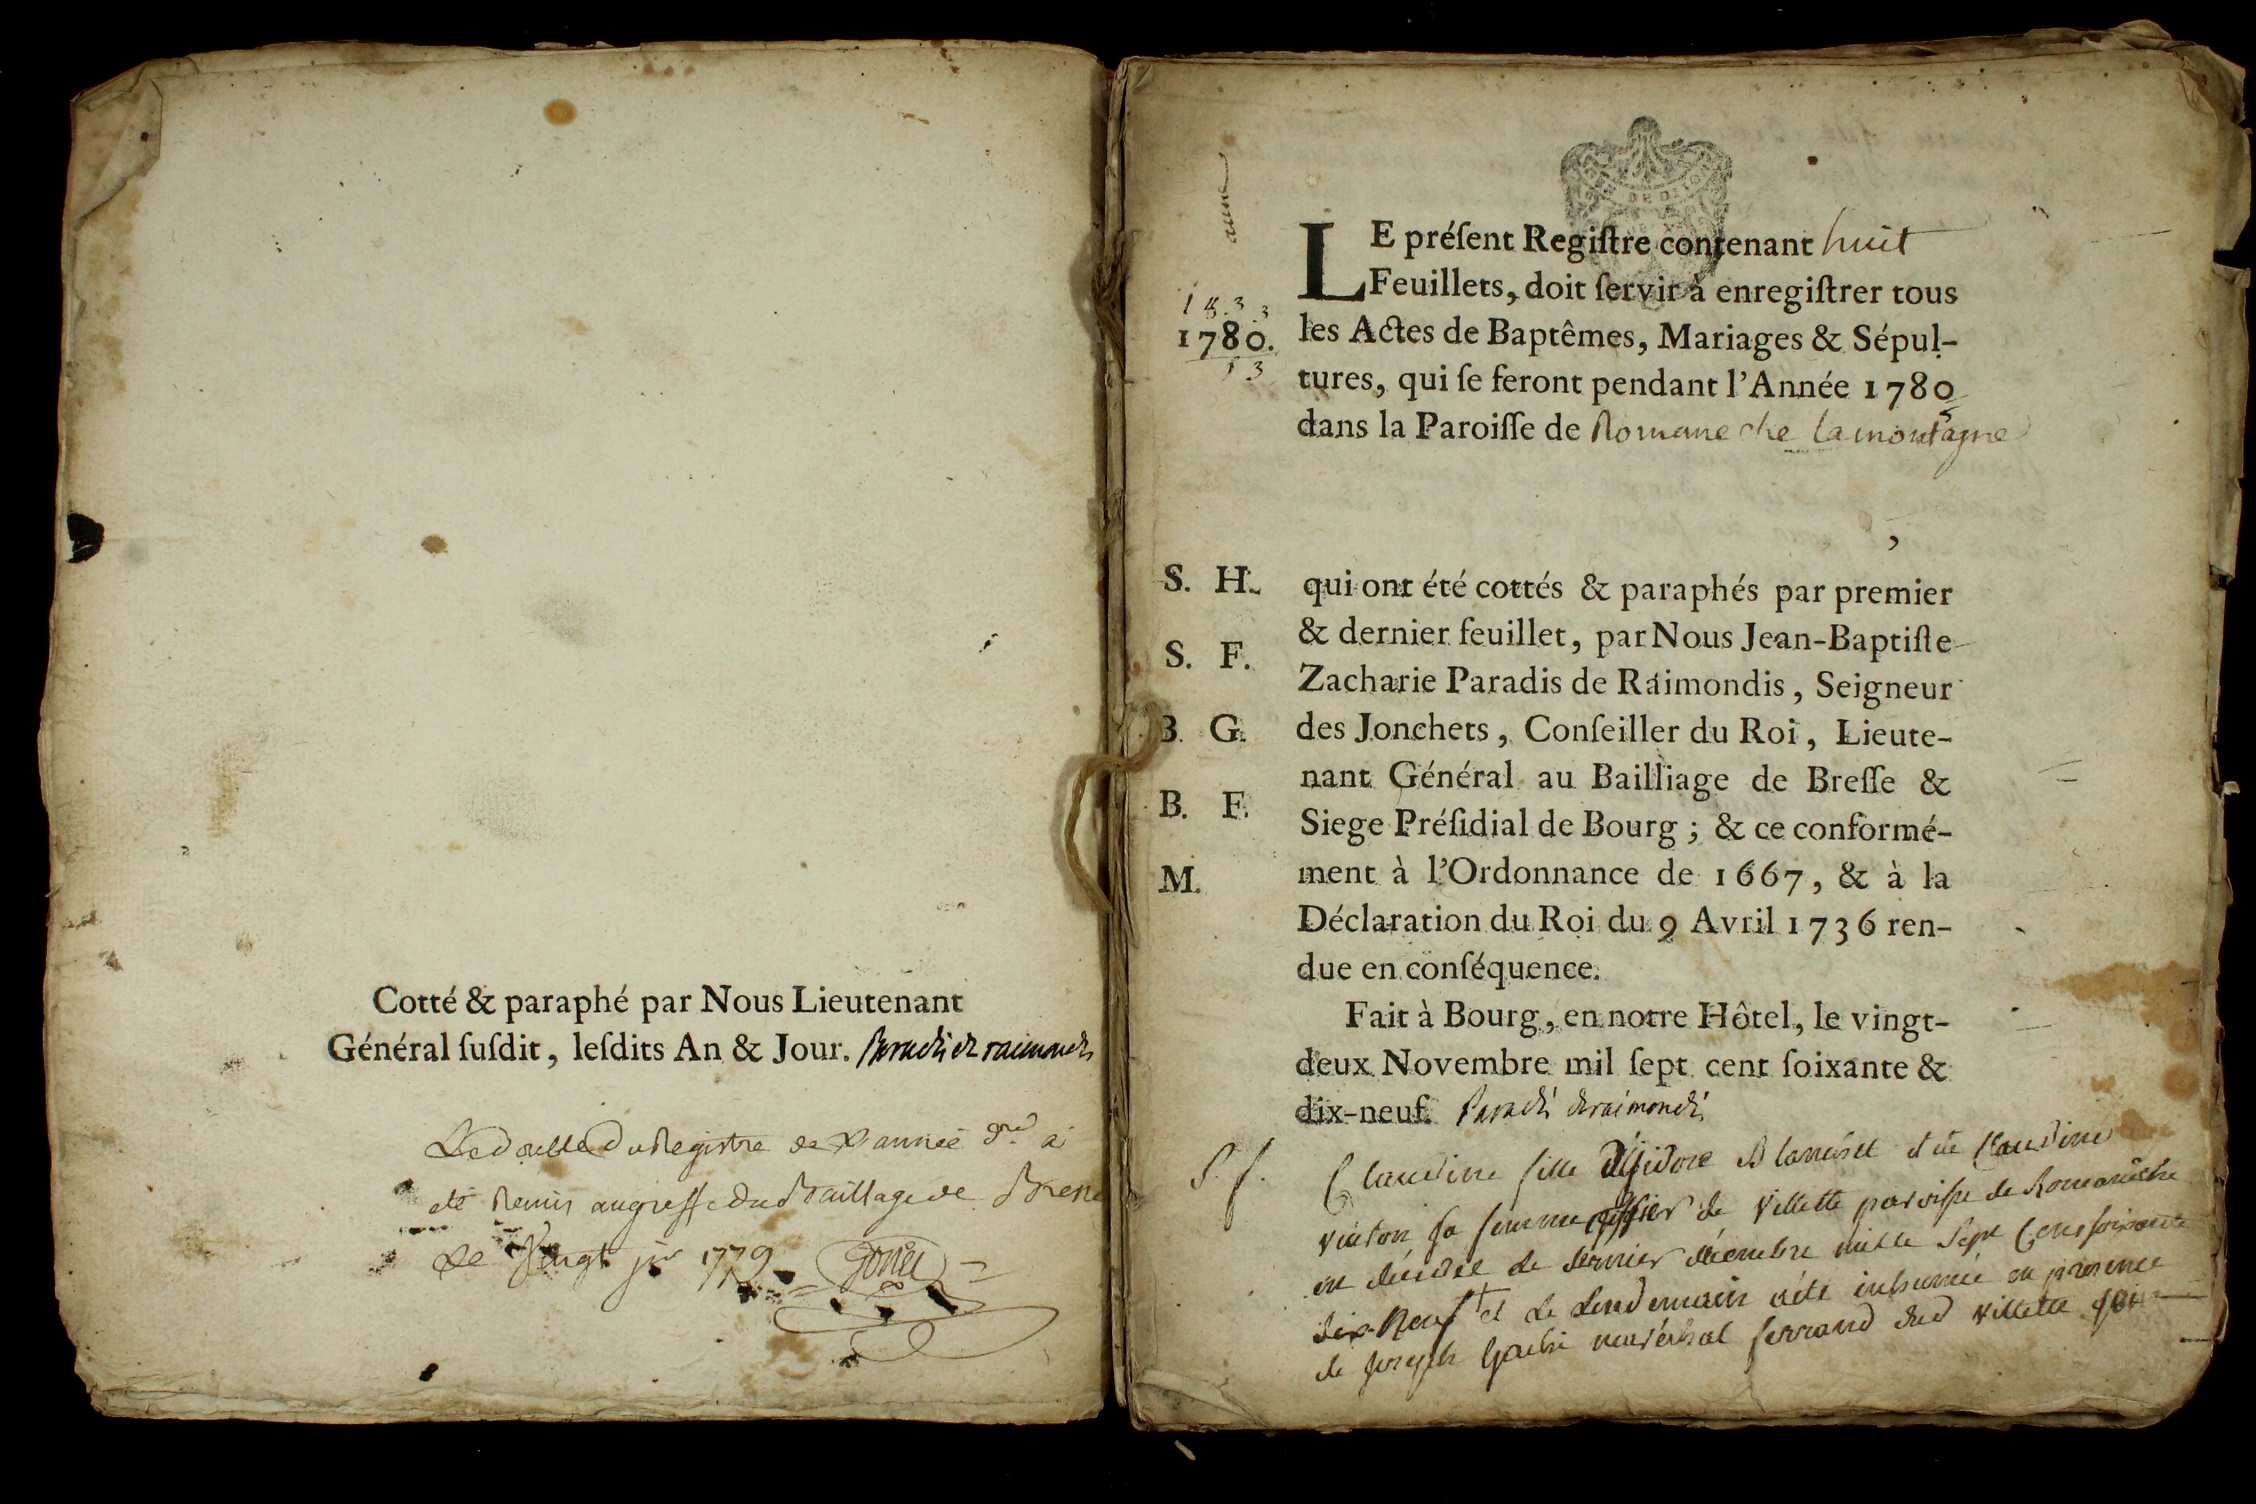 Cotté & paraphé par Nous Lieutenant
Général ſuſdit, leſdits An & Jour. Paradis de raimondis
Le double du Registre de l'année d.re a
eté Remis au greffe du Baillage de Bresse
Le Vingt jer 1779
année
1833
1780.
53
LE préſent Regiſtre contenant huit
Feuillets, doit ſervir à enregiſtrer tous
les Actes de Baptêmes, Mariages & Sépul-
tures, qui ſe feront pendant l'Année 1780
dans la Paroiſſe de Romaneche la montagne
,
S. H.
S. F.
B. G.
B. F.
M.
qui ont été cottés & paraphés par premier
& dernier feuillet, par Nous Jean-Baptiſte
Zacharie Paradis de Raimondis, Seigneur
des Jonchets, Conſeiller du Roi, Lieute-
nant Général au Bailliage de Breſſe &
Siege Préſidial de Bourg ; & ce conformé-
ment à l'Ordonnance de 1667, & à la
Déclaration du Roi du 9 Avril 1736 ren-
due en conſéquence.
Fait à Bourg, en notre Hôtel, le vingt-
deux Novembre mil ſept cent ſoixante &
dix-neuf. Paradis de raimondis
S. f.
Claudine fille d'Isidore et de Claudine
sa femme de Villette paroisse de Romanêche
est décédée le dernier décembre mille Sept Cens soixante
dix-Neuf et Le Lendemain a été inhumée en présence
de Joseph maréchal ferrand dud Villette